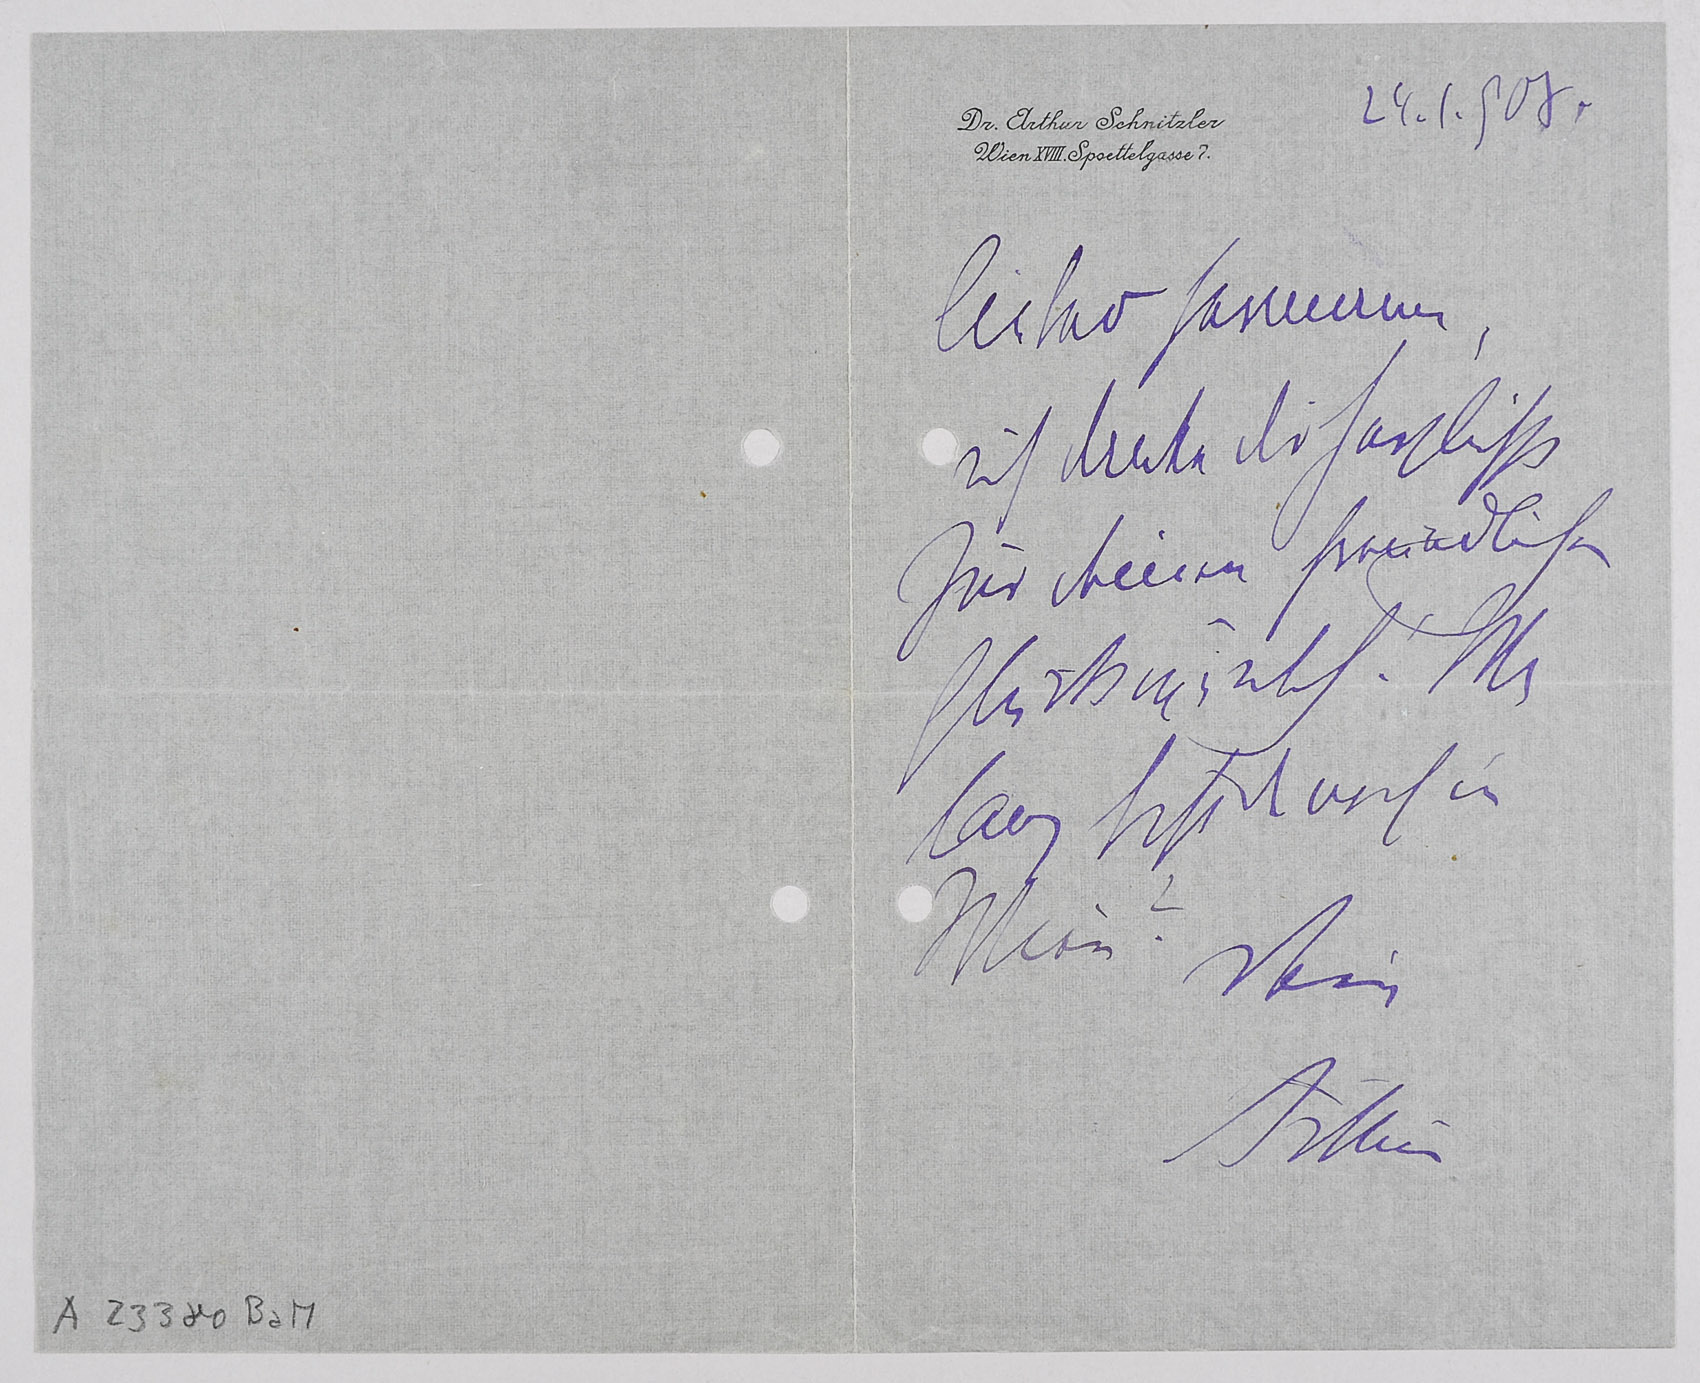 Dr. Arthur Schnitzler
Wien XVIII. Spoettelgasse 7.
24. 1. 908.
lieber Hermann,
ich danke dir herzlichst
für deinen freundlichen
Glückwunsch. Wie
lang bist du noch in
Wien?
Dein
Arthur
A 23380 BaM